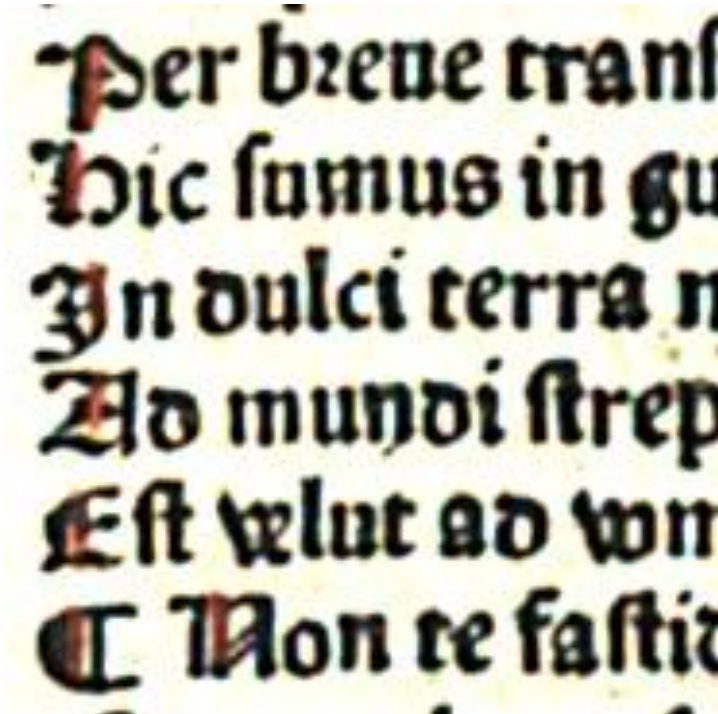 Per breue tranſ
Hic ſumus in gu
In dulci terra n
Ad mundi ſtrep
Eſt velut ad vom
¶ Non te faſtid